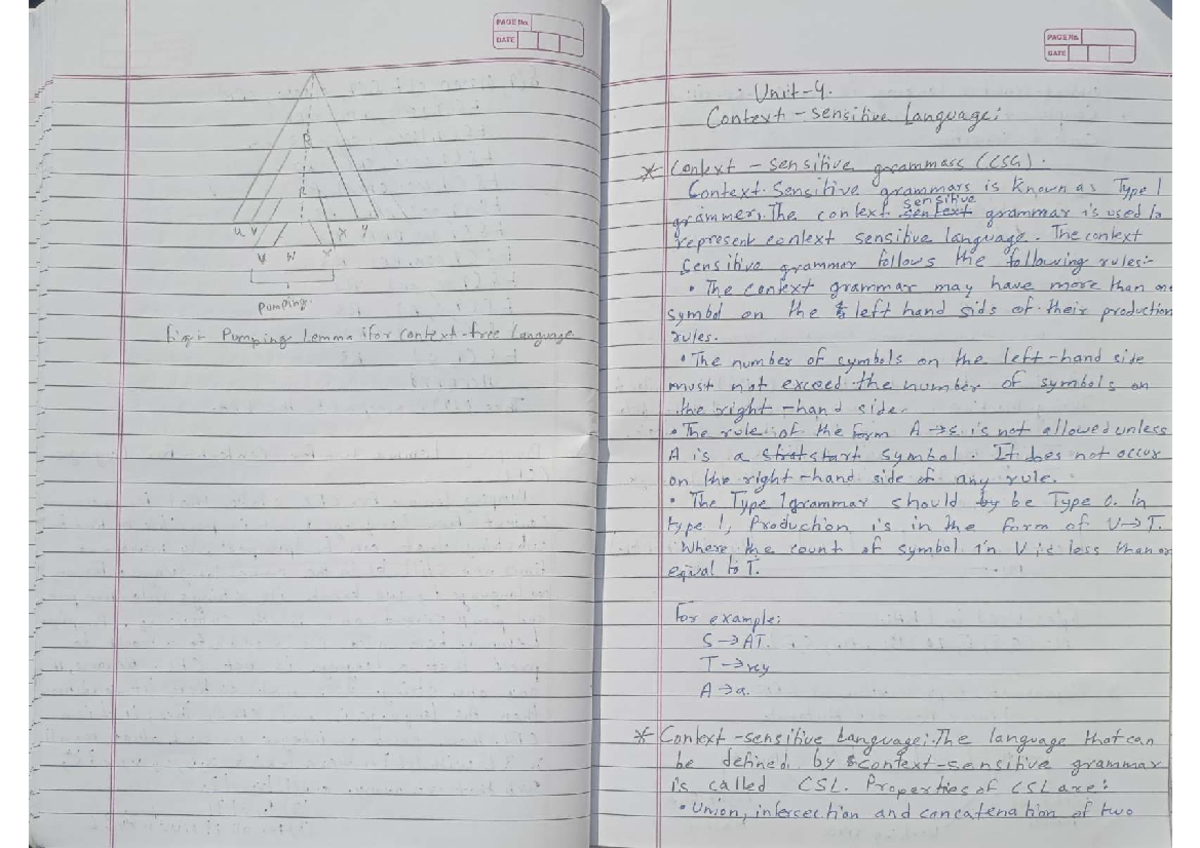 PAGE No.
DATE
R
R
u v
x y
v w x
Pumping.
Fig:- Pumping Lemma for Context-free Language
PAGE No.
DATE
Unit-4.
Context-sensitive Language:
* Context-sensitive grammars (CSG).
Context-Sensitive grammars is known as Type 1
grammers. The context sensitive sentext grammar is used to
represent context sensitive language. The context
Sensitive grammar follows the following rules:-
• The context grammar may have more than one
symbol on the left hand sids of their production
rules.
• The number of symbols on the left-hand side
must not exceed the number of symbols on
the right-hand side.
• The rule of the form A→ε is not allowed unless
A is a strat start symbol. It does not occur
on the right-hand side of any rule.
• The Type 1 grammar should by be Type 0. In
type 1, Production is in the form of V→T.
Where the count of symbol in V is less than or
equal to T.
For example:
S→AT.
T→xy
A→a.
* Context-sensitive Language:- The language that can
be defined by context-sensitive grammar
is called CSL. Properties of CSL are:
• Union, intersection and concatenation of two